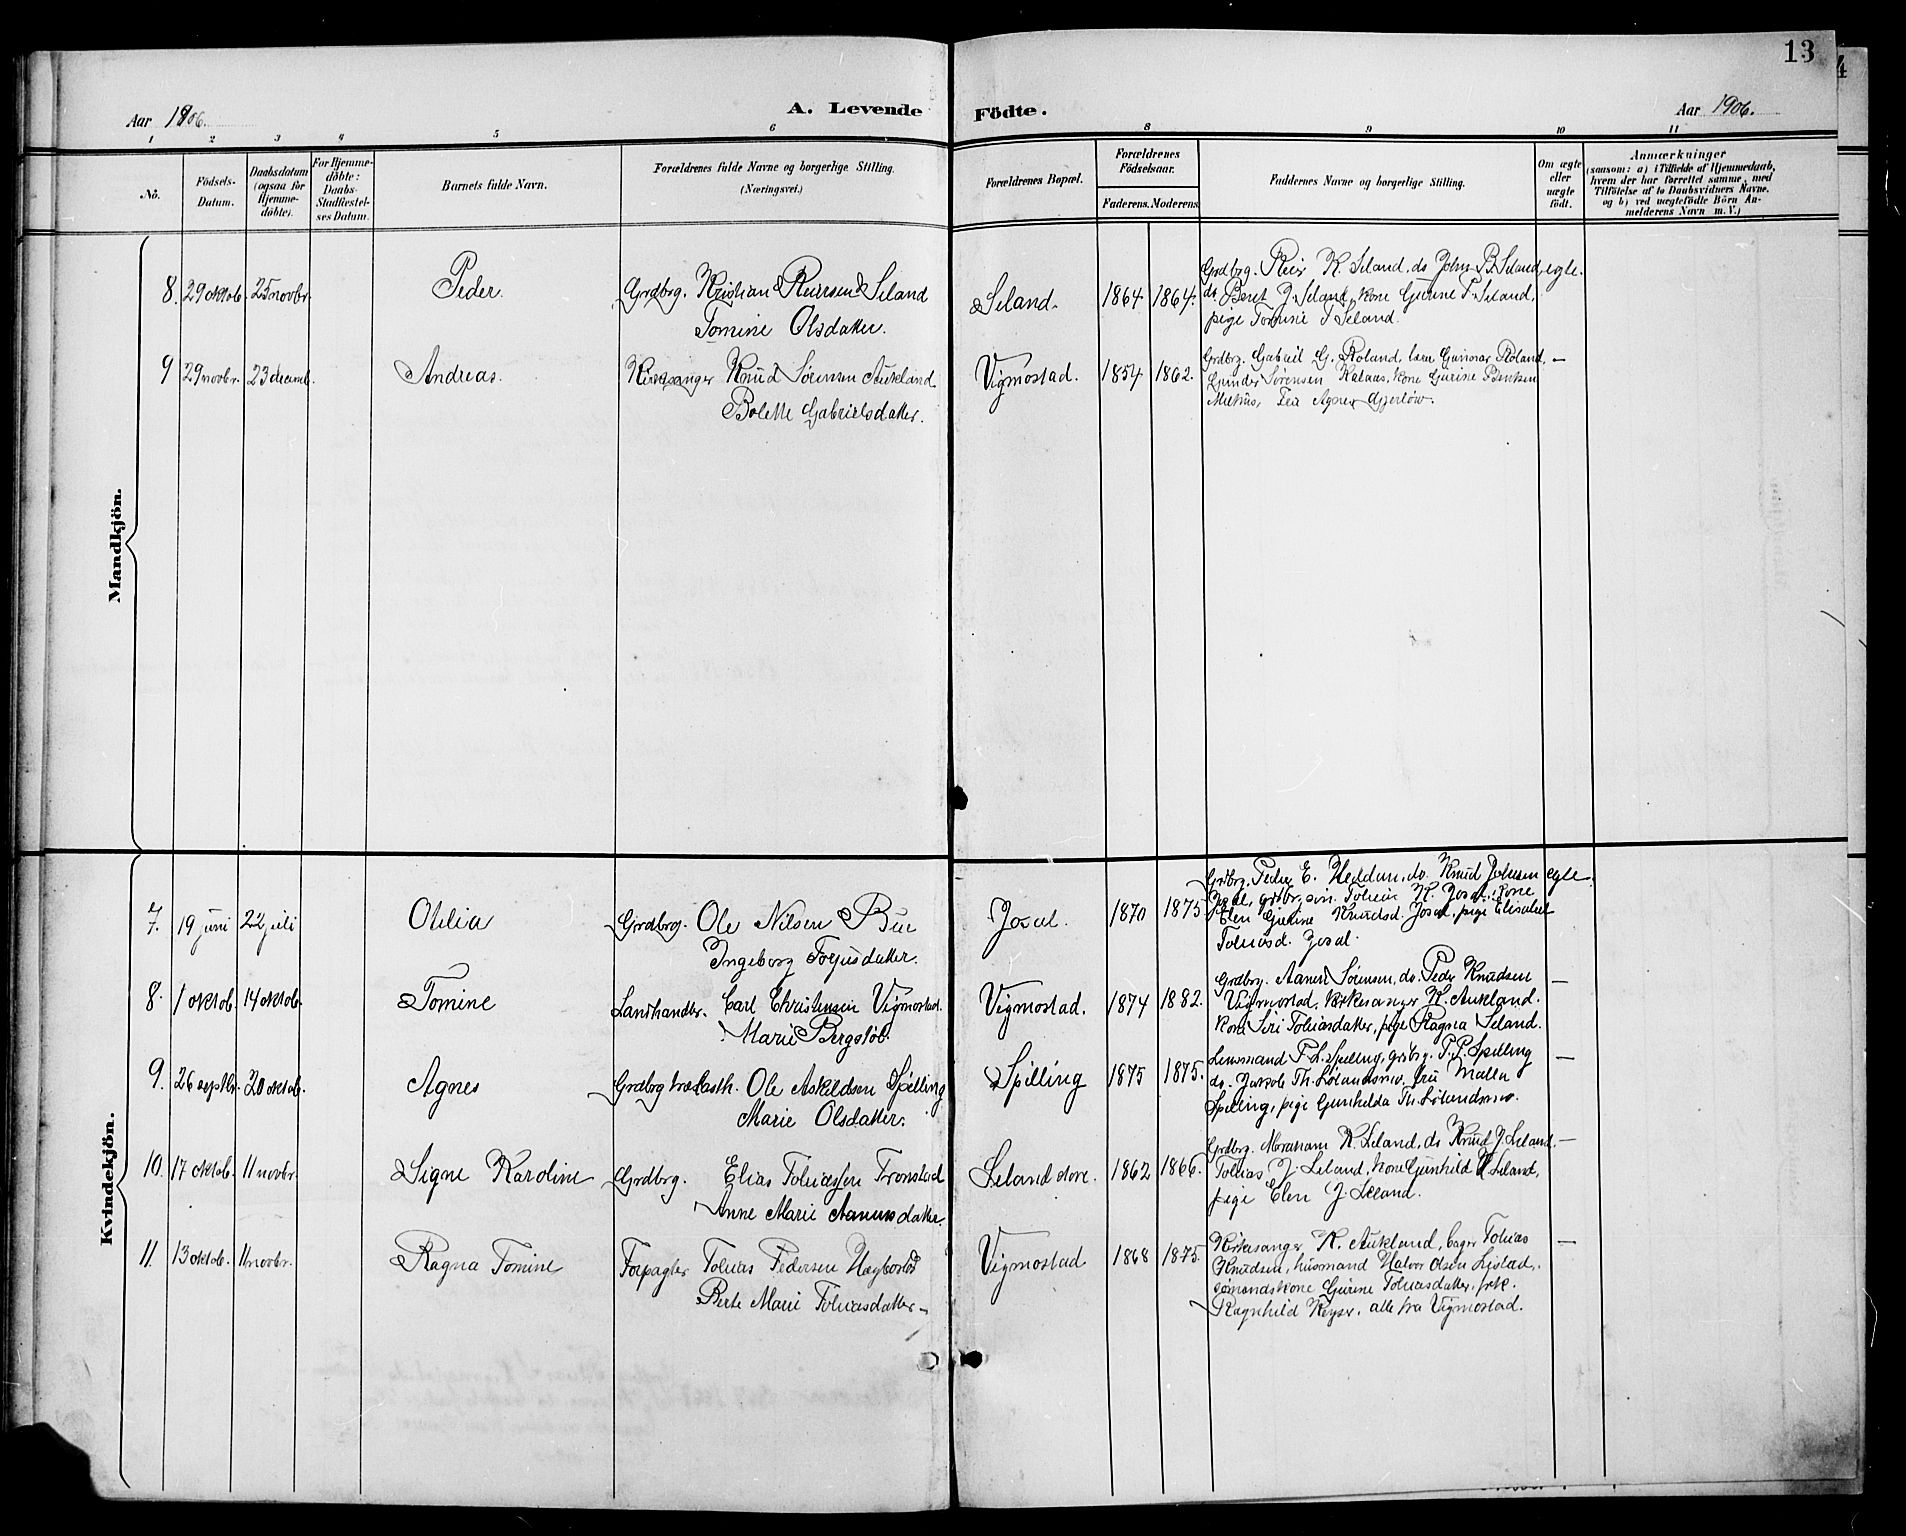 13
4
Aar 1906.
A. Levende Födte.
Aar 1906.
1 2 3 4 5 6 8 9 10 11
No.
Födsels-
Datum.
Daabsdatum
(ogsaa for
Hjemme-
döbte).
For Hjemme-
döbte:
Daabs-
Stadfæstel-
ses Datum.
Barnets fulde Navn.
Forældrenes fulde Navne og borgerlige Stilling.
(Næringsvei.)
Forældrenes Bopæl.
Forældrenes
Födselsaar.
Faderens. Moderens.
Faddernes Navne og borgerlige Stilling.
Om ægte
eller
uægte
födt.
Anmærkninger
(saasom: a) i Tilfælde af Hjemmedaab,
hvem der har forrettet samme, med
Tilföielse af to Daabsvidners Navne.
og b) ved uægtefödte Börn An-
melderens Navn m. V.)
Mandkjön.
8. 29 oktob. 25 novbr. Peder. Grdbrg. Kristian Reiersen Seland
Tomine Olsdatter.
Seland. 1864 1864.
Grdbrg. Reier K. Seland, do John B. Seland, egte.
do. Beret J. Seland, kone Gurine T. Seland,
pige Tomine J Seland.
9 29 novbr. 23 decemb. Andreas. Kirkesanger Knud Sörensen Aukland
Bolette Gabrielsdatter.
Vigmostad. 1854 1862.
Grdbrg. Gabriel G. Roland, Gunvar Roland, —
Gunder Sörensen kone Gurine Bentsen
Agnes Gjerlöw.
Kvindekjön.
7. 19 juni 22 juli Otilia Grdbrg. Ole Nilsen Bue
Ingeborg Torjusdatter.
Josal. 1870 1875
Grdbrg. Peder E. Heddan, do. Knud Johnsen egte
Josal, grdbr. sön. Tobias K. Josal, kone
Elen Gurine Knudsd. Josal, pige Elisabet
Tobiasd. Josal.
8. 1 oktob. 14 oktob. Tomine Landhandler. Carl Christensen Vigmostad.
Marie Bergstöl.
Vigmostad. 1874 1882.
Grdbrg. Aanen Sörensen, do. Peder Knudsen —
Vigmostad, kirkesanger K. Aukland.
kone Siri Tobiasdatter, pige Ragna Seland.
9. 26 septbr. 20 oktob. Agnes Grdbrg træskasth. Ole Askildsen Spilling
Marie Olsdatter.
Spilling 1875 1875.
Lensmand P. L. Spilling, grdbrg. P. P. Spilling —
do. Jakob Th. fru Malla
Spilling, pige Gunhilda Th.
10. 17 oktob. 11 novbr. Signe Karoline Grdbrg. Elias Tobiassen Tronstad
Anne Marie Aanensdatter.
Seland 1862 1866.
Grdbrg. Abraham K. Seland, do Knud J. Seland, —
Tobias J. Seland, kone Gunhild K Seland,
pige Elen J. Seland.
11. 13 oktob. 11 novbr. Ragna Tomine Forpagter Tobias Pedersen Hægbostad
Berte Marie Tobiasdatter—
Vigmostad 1868 1875.
Kirkesanger K. Aukland, bager Tobias —
Knudsen, husmand Halvor Olsen
sömandskone Gurine Tobiasdatter, frk.
Ragnhild Keyser, alle fra Vigmostad.